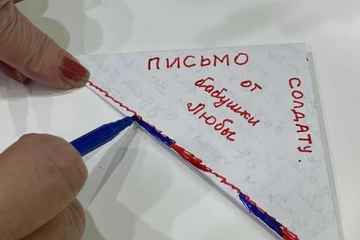 ПИСЬМО
от
бабушки
Любы
СОЛДАТУ.